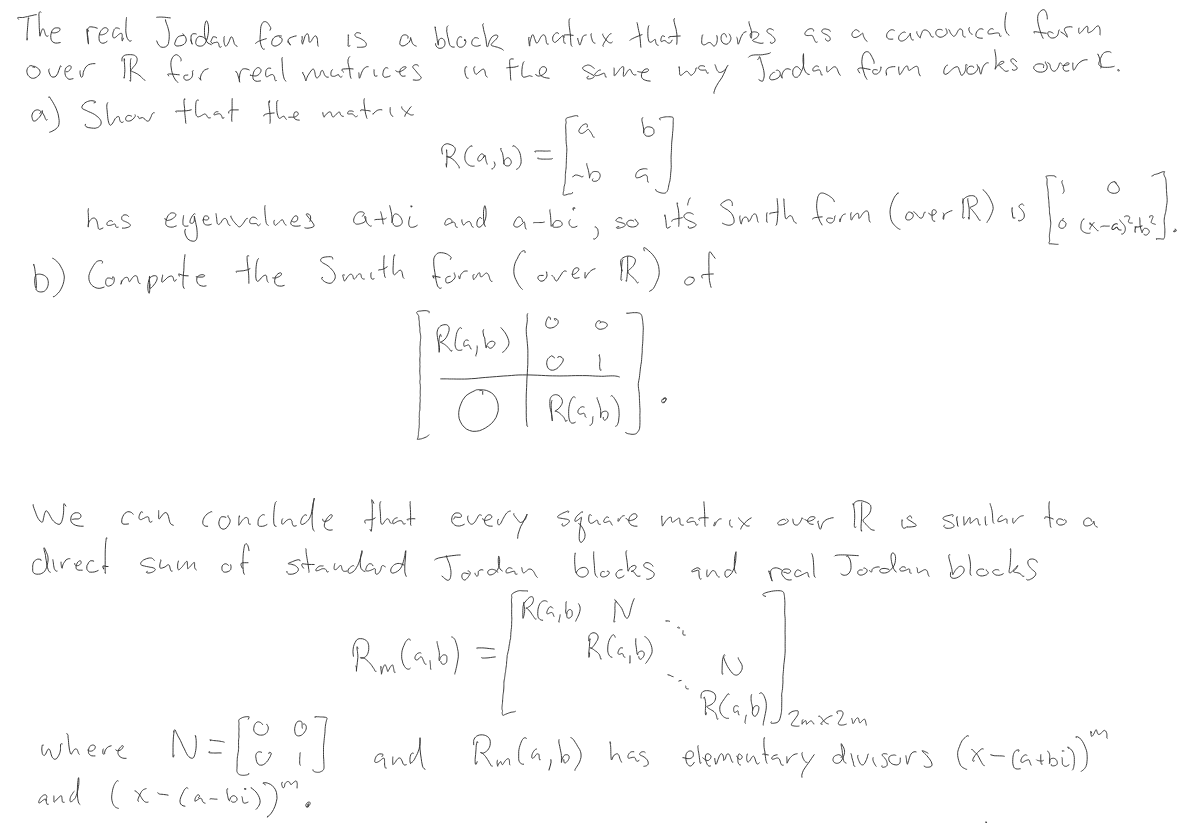 The real Jordan form is a block matrix that works as a canonical form
over ℝ for real matrices in the same way Jordan form works over ℂ.
a) Show that the matrix
R(a,b) = [a b
-b a]
has eigenvalues a+bi and a-bi, so it's Smith form (over ℝ) is [1 0
0 (x-a)²+b²].
b) Compute the Smith form (over ℝ) of
[R(a,b) | 0 0
0 1
O | R(a,b)].
We can conclude that every square matrix over ℝ is similar to a
direct sum of standard Jordan blocks and real Jordan blocks
R_m(a,b) = [R(a,b) N ⋱
R(a,b)
⋱ N
R(a,b)]_{2m×2m}
where N = [0 0
0 1] and R_m(a,b) has elementary divisors (x-(a+bi))^m
and (x-(a-bi))^m.